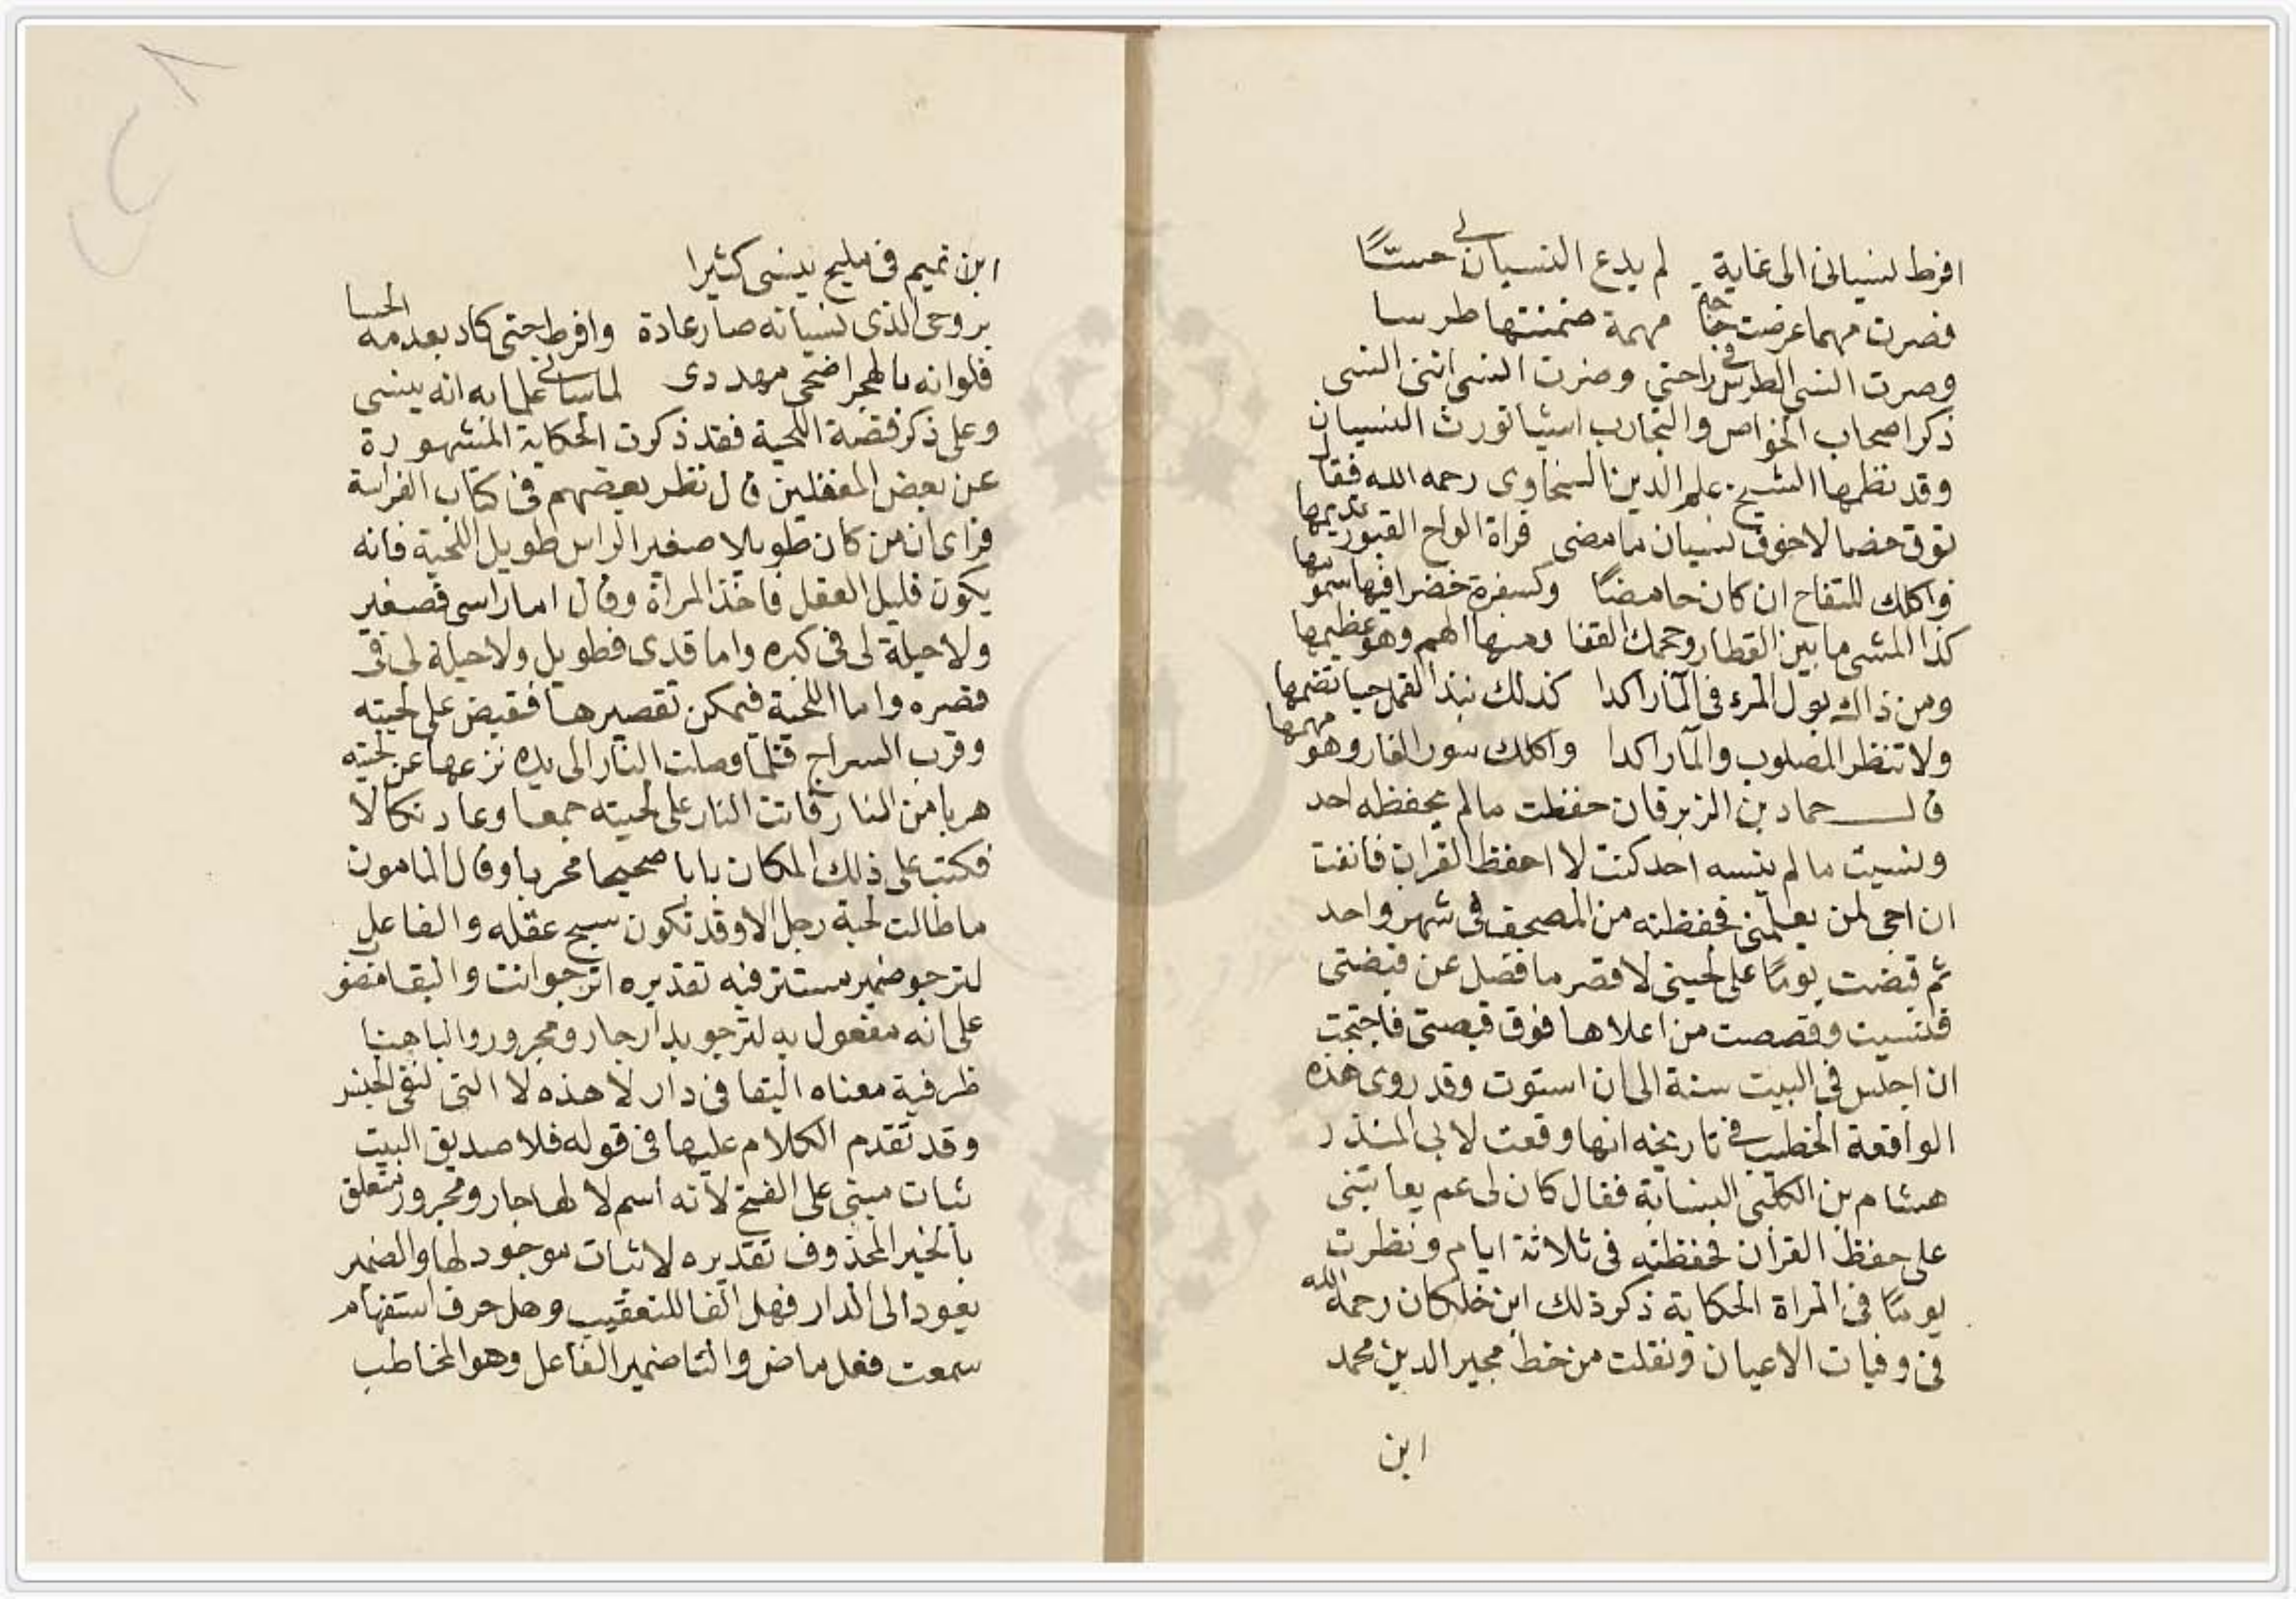 افرط نسيانى الى غاية لم يدع النسيان لى حسّا
فصرت مهما عرضت حاجة مهمة ضمنتها طرسا
وصرت انسى الطرس فى راحتى وصرت انسى اننى انسى
ذكر اصحاب الخواص والتجارب اشيأ تورث النسيان
وقد نظمها الشيخ علم الدين السخاوى رحمه الله فقال
توق خصالا خوف نسيان ما مضى قراة الواح القبور تديمها
واكلك للتفاح ان كان حامضًا وكسفرة خضرا فيها سمومها
كذا المشى ما بين القطار وحجمك القفا ومنها الهم وهو عظيمها
ومن ذاك بول المرء فى المآ راكدا كذلك نبذ القمل حيا تضمها
ولا تنظر المصلوب والمآ راكدا واكلك سور الفار وهو مهمها
قال حماد بن الزبرقان حفظت مالم يحفظه احد
ونسيت مالم ينسه احد كنت لا احفظ القران فانفت
ان اجى لمن يعلمنى فحفظته من المصحف فى شهر واحد
ثم قبضت يومًا على لحيتى لاقصر ما فضل عن قبضتى
فنسيت وقصصت من اعلاها فوق قبضتى فاحتجت
ان اجلس فى البيت سنة الى ان استوت وقد روى هذه
الواقعة الخطيب فى تاريخه انها وقعت لابى المنذر
هشام بن الكلبى النسابة فقال كان لى عم يعاتبنى
على حفظ القرأن فحفظته فى ثلاثة ايام ونظرت
يومًا فى المراة الحكاية ذكر ذلك ابن خلكان رحمه الله
فى وفيات الاعيان ونقلت من خط مجير الدين محمد
ابن
ابن تميم فى مليح ينسى كثيرا
بروحى الذى نسيانه صار عادة وافرط حتى كاد يعدمه الحسا
فلو انه بالهجر اضحى مهددى لما سأنى علما به انه ينسى
وعلى ذكر قصة اللحية فقد ذكرت الحكاية المشهورة
عن بعض المغفلين قال نظر بعضهم فى كتاب الفراسة
فراى ان من كان طويلا صغير الراس طويل اللحية فانه
يكون قليل العقل فاخذ المراة وقال اما راسى فصغير
ولا حيلة لى فى كبره واما قدى فطويل ولا حيلة لى فى
قصره واما اللحية فيمكن تقصيرها فقبض على لحيته
وقرب السراج فلما وصلت النار الى يده نزعها عن لحيته
هربا من النار فاتت النار على لحيته جمعا وعاد نكالا
فكتب على ذلك المكان بابا صحيحا مجربا وقال المامون
ما طالت لحية رجل الا وقد تكون عقله والفاعل
لترجو ضمير مستتر فيه تقديره اترجو انت والبقا منصوب
على انه مفعول به لترجو بدار جار ومجرور والبا هنا
ظرفية معناه البقا فى دار لا هذه لا التى لنفى الجنس
وقد تقدم الكلام عليها فى قوله فلا صديق البيت
ثبات مبنى على الفتح لأنه اسم لا لها جار ومجرور متعلق
بالخبر المحذوف تقديره لا ثبات موجود لها والضمير
يعود الى الدار فهل الفا للتعقيب وهل حرف استفهام
سمعت فعل ماض والتا ضمير الفاعل وهو المخاطب